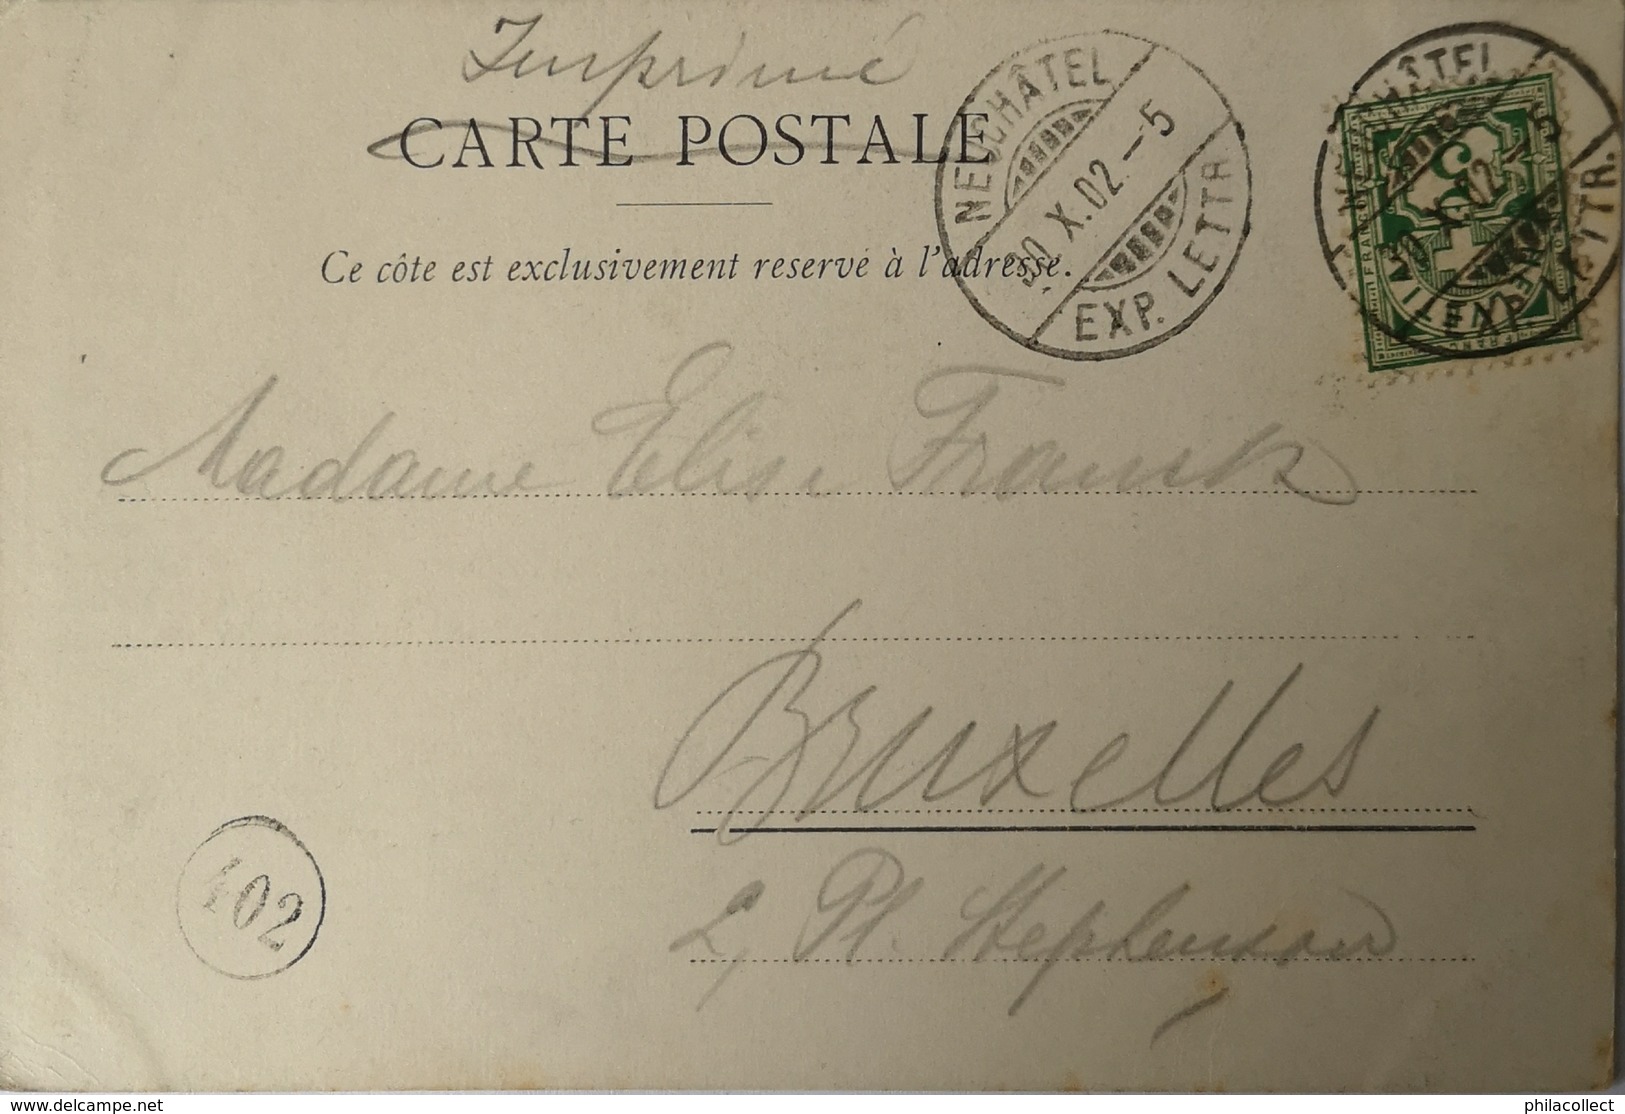 Imprimé
CARTE POSTALE
Ce côte est exclusivement reservé à l'adresse.
NEUCHÂTEL
30 X.02.–5
EXP. LETTR.
NEUCHÂTEL
30 X.02.–5
EXP. LETTR.
FRANCO
5
HELVETIA
FRANCO
Madame Elise Franck
Bruxelles
2, Pl. Stephenson
402
delcampe.net
philacollect